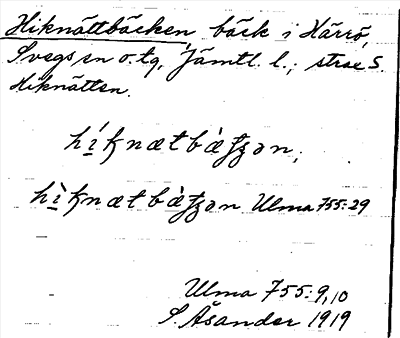 Hiknättbäcken bäck i Härrö,
Svegs sn o. tg, Jämtl. l.; strax S.
Hiknätten.
híknætbàʃʒən;
hìknætbàʃʒən Ulma 755:29
Ulma 755:9,10
S. Åsander 1919